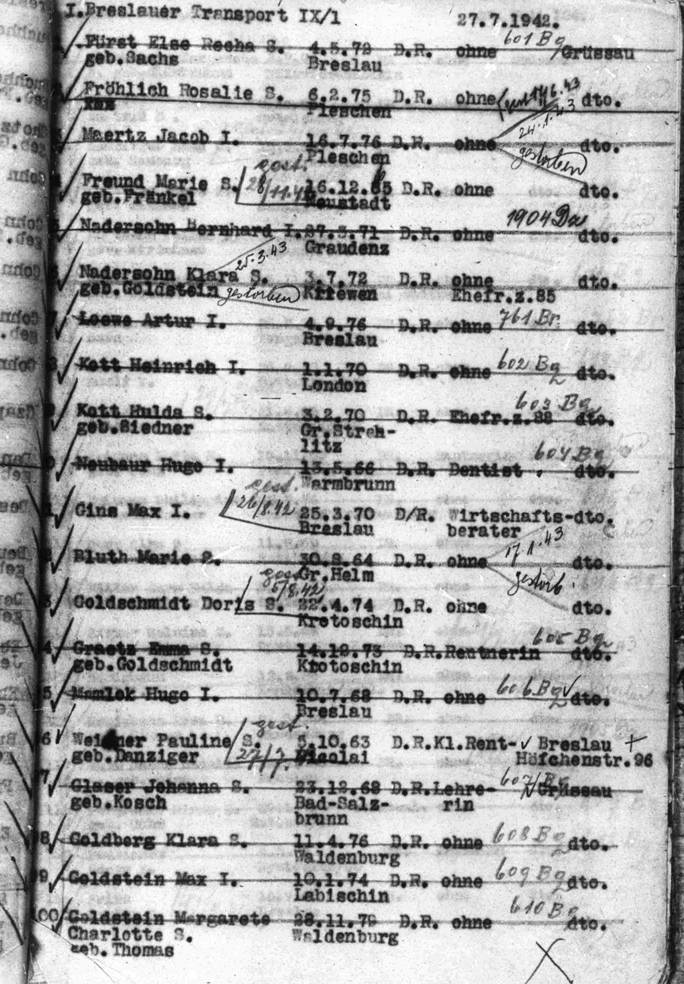 I.Breslauer Transport IX/1 27.7.1942.
Fürst Else Recha S. 4.5.72 D.R. ohne 601 Bg Grüssau
geb.Sachs Breslau
Fröhlich Rosalie S. 6.2.75 D.R. ohne dto.
Pleschen
Maertz Jacob I. 16.7.76 D.R. ohne 24.1.43 gestorben dto.
Pleschen
Freund Marie S. gest. 16.12.65 D.R. ohne dto.
geb.Fränkel Neustadt
Nadersohn Bernhard I. 27.3.71 D.R. ohne 1904 dto.
Graudenz
25.3.43
Nadersohn Klara S. 3.7.72 D.R. ohne dto.
geb.Goldstein gestorben Kriewen Ehefr.z.85
7 Loewe Artur I. 4.9.76 D.R. ohne 761 Br. dto.
Breslau
8 Kott Heinrich I. 1.1.70 D.R. ohne 602 Bg dto.
London
9 Kott Hulda S. 3.2.70 D.R. Ehefr.z.88 603 Bg dto.
geb.Siedner Gr.Streh-
litz
0 Neubaur Hugo I. 13.5.66 D.R. Dentist 604 Bg dto.
Warmbrunn
gest. 26/8.42
1 Gins Max I. 25.3.70 D/R. Wirtschafts-dto.
Breslau berater
2 Bluth Marie S. 30.8.64 D.R. ohne 17.1.43 gestorb. dto.
Gr.Helm
3 Goldschmidt Doris S. 22.4.74 D.R. ohne dto.
Krotoschin
4 Graetz Emma S. 14.12.73 D.R.Rentnerin 605 Bg dto.
geb.Goldschmidt Krotoschin
5 Mamlok Hugo I. 10.7.68 D.R. ohne 606 Bg dto.
Breslau
6 Pauline S. gest. 5.10.63 D.R.Kl.Rent- Breslau +
geb.Danziger Nicolai Höfchenstr.96
7 Glaser Johanna S. 23.12.68 D.R.Lehre- 607 Bg Grüssau
geb.Kosch Bad-Salz- rin
brunn
8 Goldberg Klara S. 11.4.76 D.R. ohne 608 Bg dto.
Waldenburg
9 Goldstein Max I. 10.1.74 D.R. ohne 609 Bg dto.
Labischin
00 Goldstein Margarete 28.11.79 D.R. ohne 610 Bg dto.
Charlotte S. Waldenburg
geb.Thomas